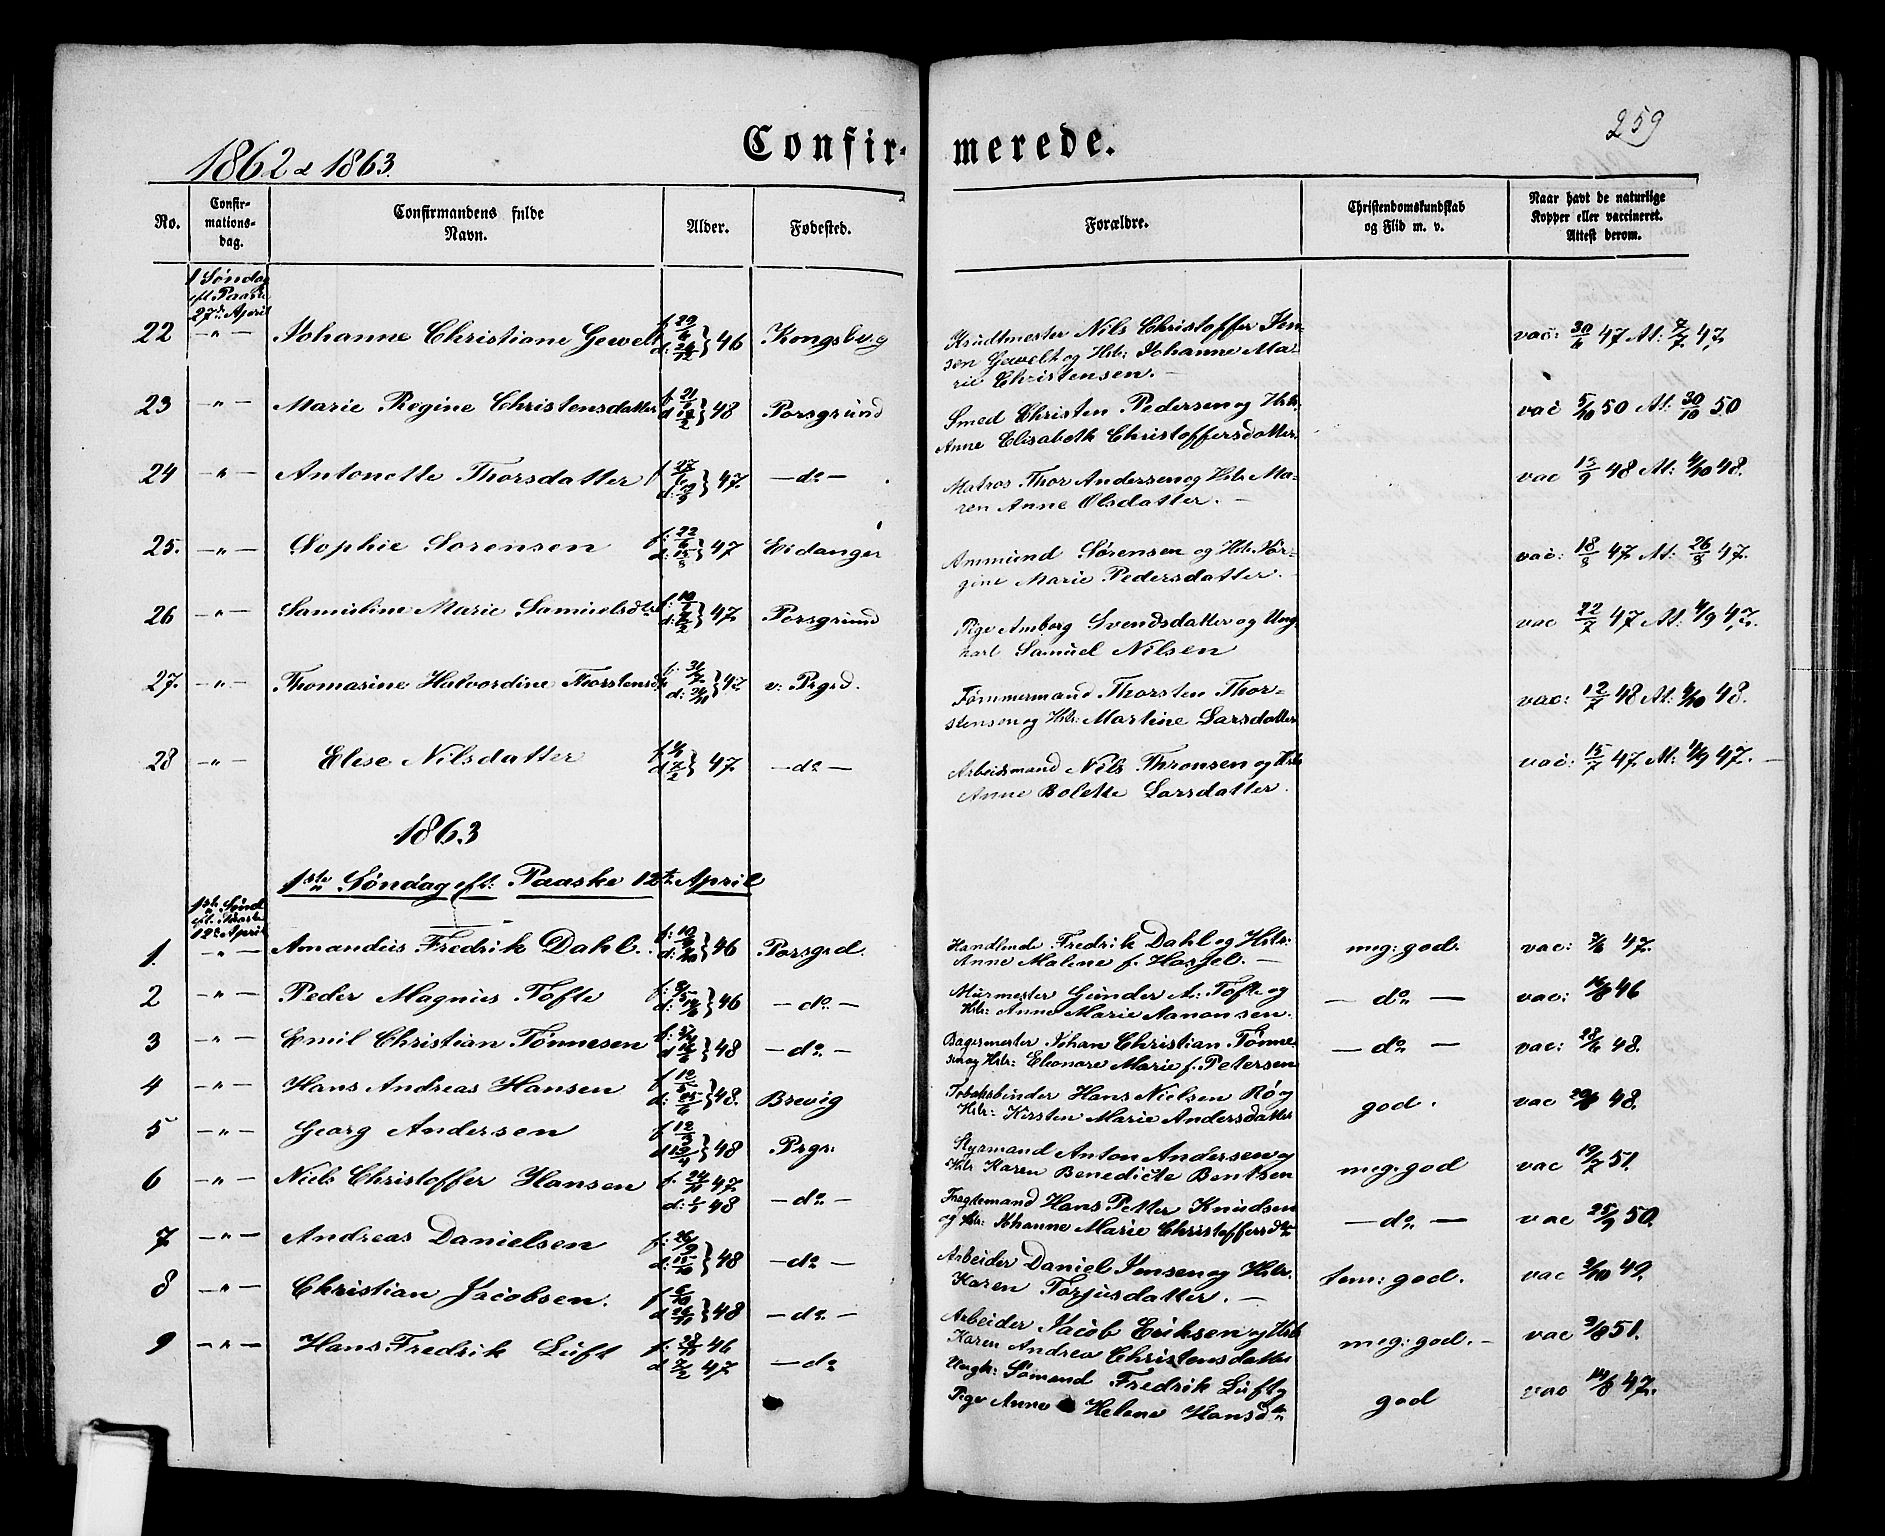 Confir-
merede.
259
1862 & 1863.
No.
Confir-
mations-
dag.
Confirmandens fulde
Navn.
Alder.
Fødested.
Forældre.
Christendomskundskab
og Flid m. v.
Naar havt de naturlige
Kopper eller vaccineret.
Attest derom.
1 Søndag
eft Paaske
27de April
22 —"— Johanne Christiane Gewelt 46 Kongsbrg
Nils Christoffer Jen-
sen Gewelt og Hst: Johanne Ma-
rie Christensen. —
vac: 47 At: 7/7 47,
23 —"— Marie Regine Christensdatter 48 Porsgrund
Smed Christen Pedersen og Hst:
Anne Elisabeth Christoffersdatter.
vac 5/10 50 At: 30/10 50
24 —"— Antonette Thorsdatter 47. —do—
Matros Thor Andersen og Hst: Ma-
ren Anne Olsdatter. —
vac 13/9 48 At: 4/10 48.
25. —"— Sophie Sørensen f: 22/6 d: 15/8 47 Eidanger
Ammund Sørensen og Hst: Jør-
gine Marie Pedersdatter. —
vac: 18/8 47. At: 26/8 47.
26 —"— Samueline Marie Samuelsdtr 47. Porsgrund
Pige Amborg Svendsdatter og Ung-
karl Samuel Nilsen
vac 22/7 47 At: 4/9 47.
27. —"— Thomasine Halvordine Thorstensdtr 47. v: Prgrd.
Tømmermand Thorsten Thor-
stensen og Hst: Martine Larsdatter
vac: 12/7 48 At: 4/10 48.
28 —"— Elese Nilsdatter 47. —do—
Arbeidsmand Nils Thronsen og Hst
Anne Bolette Larsdatter.
vac: 15/7 47 At: 47. —
1863
1ste Søndag eft: Paaske 12te April
1ste Sønd
eft. Paaske
12te April
1. —"— Amandus Fredrik Dahl. 46 Porsgrd.
Handlende Fredrik Dahl og Hst:
Anne Malene f. —
meg: god.
vac: 47.
2 —"— Peder Magnus Tofte 46 —do—
Murmester Gunder A: Tofte og
Hst: Anne Marie Aanonsen.
—do—
vac: 46
3 —"— Emil Christian Tønnesen 48 —do—
Bagermester Johan Christian Tønne-
sen og Hst: Eleonore Marie f. Petersen
—do—
vac: 28/6 48.
4 —"— Hans Andreas Hansen f 12/5 d: 25/6 48. Brevig
Hans Nielsen Rø og
Hst: Kirsten Marie Andersdatter
god.
vac 48.
5 —"— Georg Andersen f 12/3 d 13/4 48 Prgr:
Styrmand Anton Andersen og
Hst: Karen Benedicte Bentsen
meg: god
vac 19/7 51.
6 —"— Niels Christoffer Hansen f. 24/11 47. d: 48 —do—
Fragtemand Hans Petter Knudsen
og Hst: Johanne Marie Christoffersdtr
—do—
vac 25/9 50.
7. —"— Andreas Danielsen f: 26/9 d: 15/10 48 —do—
Arbeider Daniel Jensen og Hst:
Karen Torjusdatter. —
tem: god.
vac 2/10 49.
8 —"— Christian Jacobsen. f 6/10 d 26/11 48 —do—
Arbeider Jacob Eriksen og Hst:
Karen Andrea Christensdatter
meg: god. —
vac 51.
9 —"— Hans Fredrik Luft f: 28/11 46 d 7/2 47 —do
Ungk: Sømand Fredrik Luft og
Pige Anne Helene Hansdtr
god
vac 14/8 47.